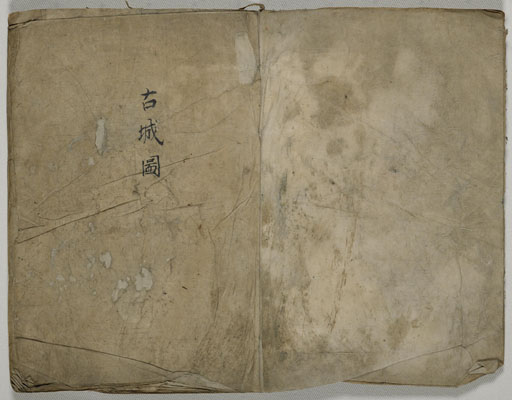 古城圖